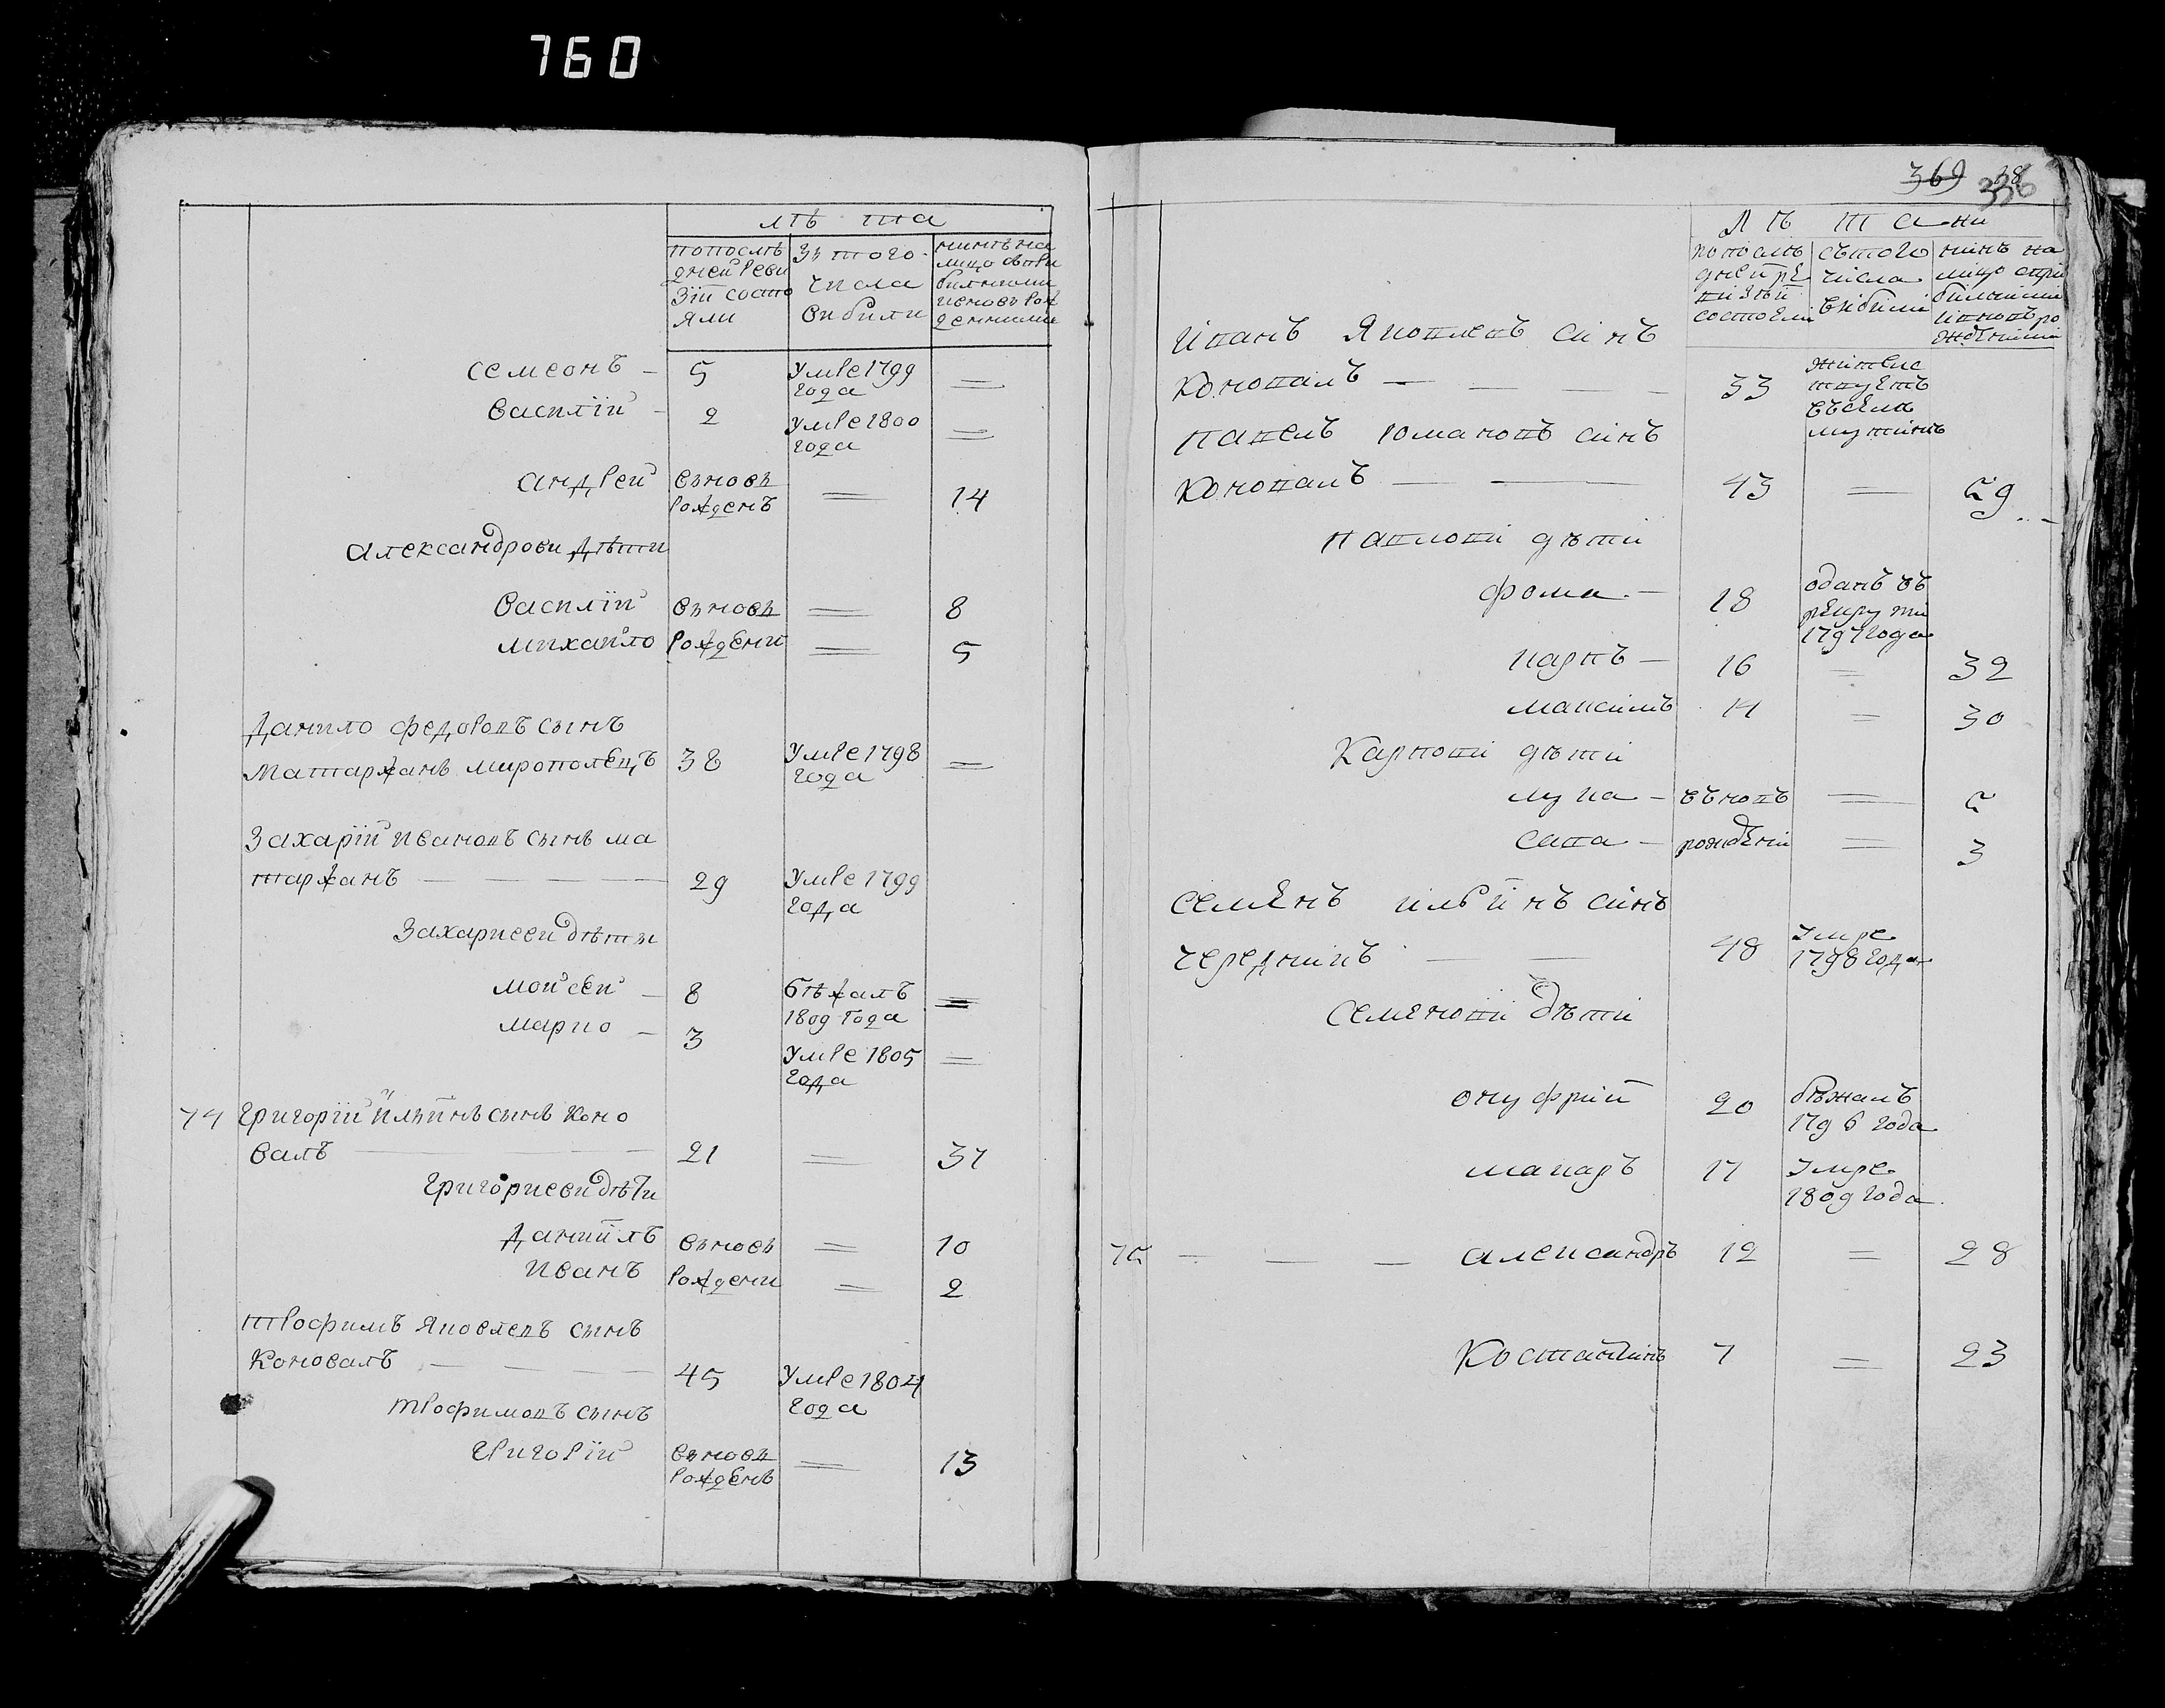 760
лѣ та
попослѣ
дней реви
зїи состо
яли
зъ того
числа
вибили
нинѣ на
лицо съпри
билними
иновь рож
денними
семеонъ – 5 Умре 1799
года =
Василїй – 2 Умре 1800
года =
андрей вновь
рожденъ = 14
александрови дѣти
Василїй вновь = 8
михайло рождени = 5
данило федоровъ сынъ
матаржанъ мирополецъ 38 Умре 1798
года =
Захарїй ивановъ сынъ ма
таржанъ — — — 29 Умре 1799
года
Захариеви дѣти
мойсей – 8 бѣжалъ
1809 года =
марко – 3 Умре 1805
года =
74 Григорїй ильинъ сынъ коно
валъ — 21 = 37
Григориеви дѣти
даниилъ вновь = 10
иванъ рождени = 2
трофимъ яковлевъ сынъ
коновалъ — — — 45 Умре 1804
года
трофимовъ сынъ
григорїй вновь
рожденъ = 13
369
лѣ та ми
попослѣ
дней ре
визїи
состояли
сътого
числа
вибили
нинѣ на
лицо спри
билними
иновъ ро
жденними
иванъ яковлевъ синъ
коновалъ — — — 33 жителс
твуетъ
въсела
мутинъ
павелъ романовъ синъ
коновалъ — — 43 = 59
павлови дѣти
фома – 18 оданъ въ
рекрути
1797 года
карпъ – 16 = 32
максимъ 14 = 30
Карпови дѣти
лука – въновъ = 5
сава – рождени = 3
семенъ ильинъ синъ
чередникъ — — 48 Умре
1798 года
семенови дѣти
онуфрий 20 бѣжалъ
1796 года
макаръ 17 Умре
1809 года
75 — — — александръ 12 = 28
Костантинъ 7 = 23